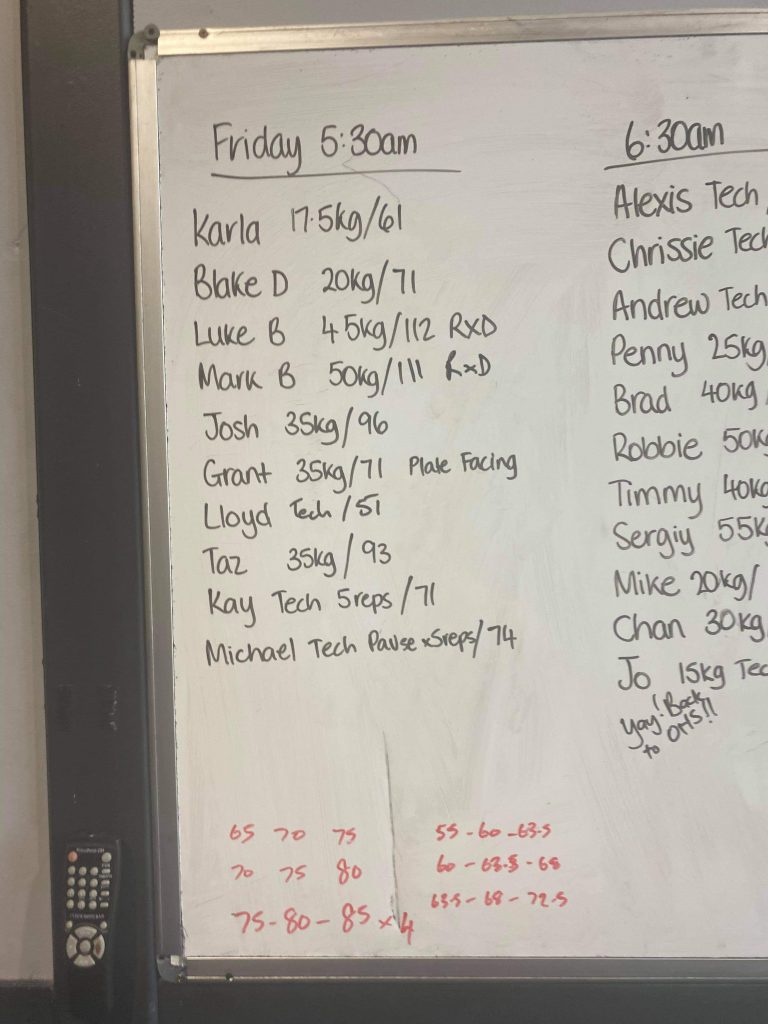 Friday 5:30am
Karla 17.5kg/61
Blake D 20kg/71
Luke B 45kg/112 RxD
Mark B 50kg/111 RxD
Josh 35kg/96
Grant 35kg/71 Plate Facing
Lloyd Tech/51
Taz 35kg/93
Kay Tech 5reps/71
Michael Tech Pause x5reps/74
6:30am
Alexis Tech
Chrissie Tech
Andrew Tech
Penny 25kg
Brad 40kg
Robbie 50k
Timmy 40kg
Sergiy 55k
Mike 20kg/
Chan 30kg
Jo 15kg Tec
Yay! Back
to OHS!!
65 70 75
70 75 80
75-80-85 x4
55-60-63.5
60-63.5-68
63.5-68-72.5